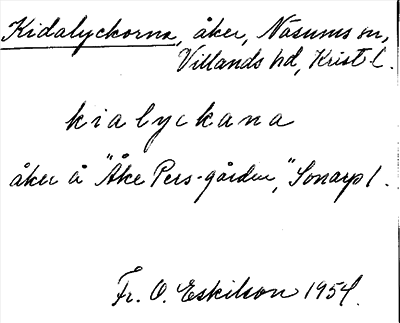 Kidalyckorna, åker, Näsums sn,
Villands hd, Krist l.
kialyckana
åker å "Åke Pers-gården," Sonarp 1.
Fr. O. Eskilson 1954.